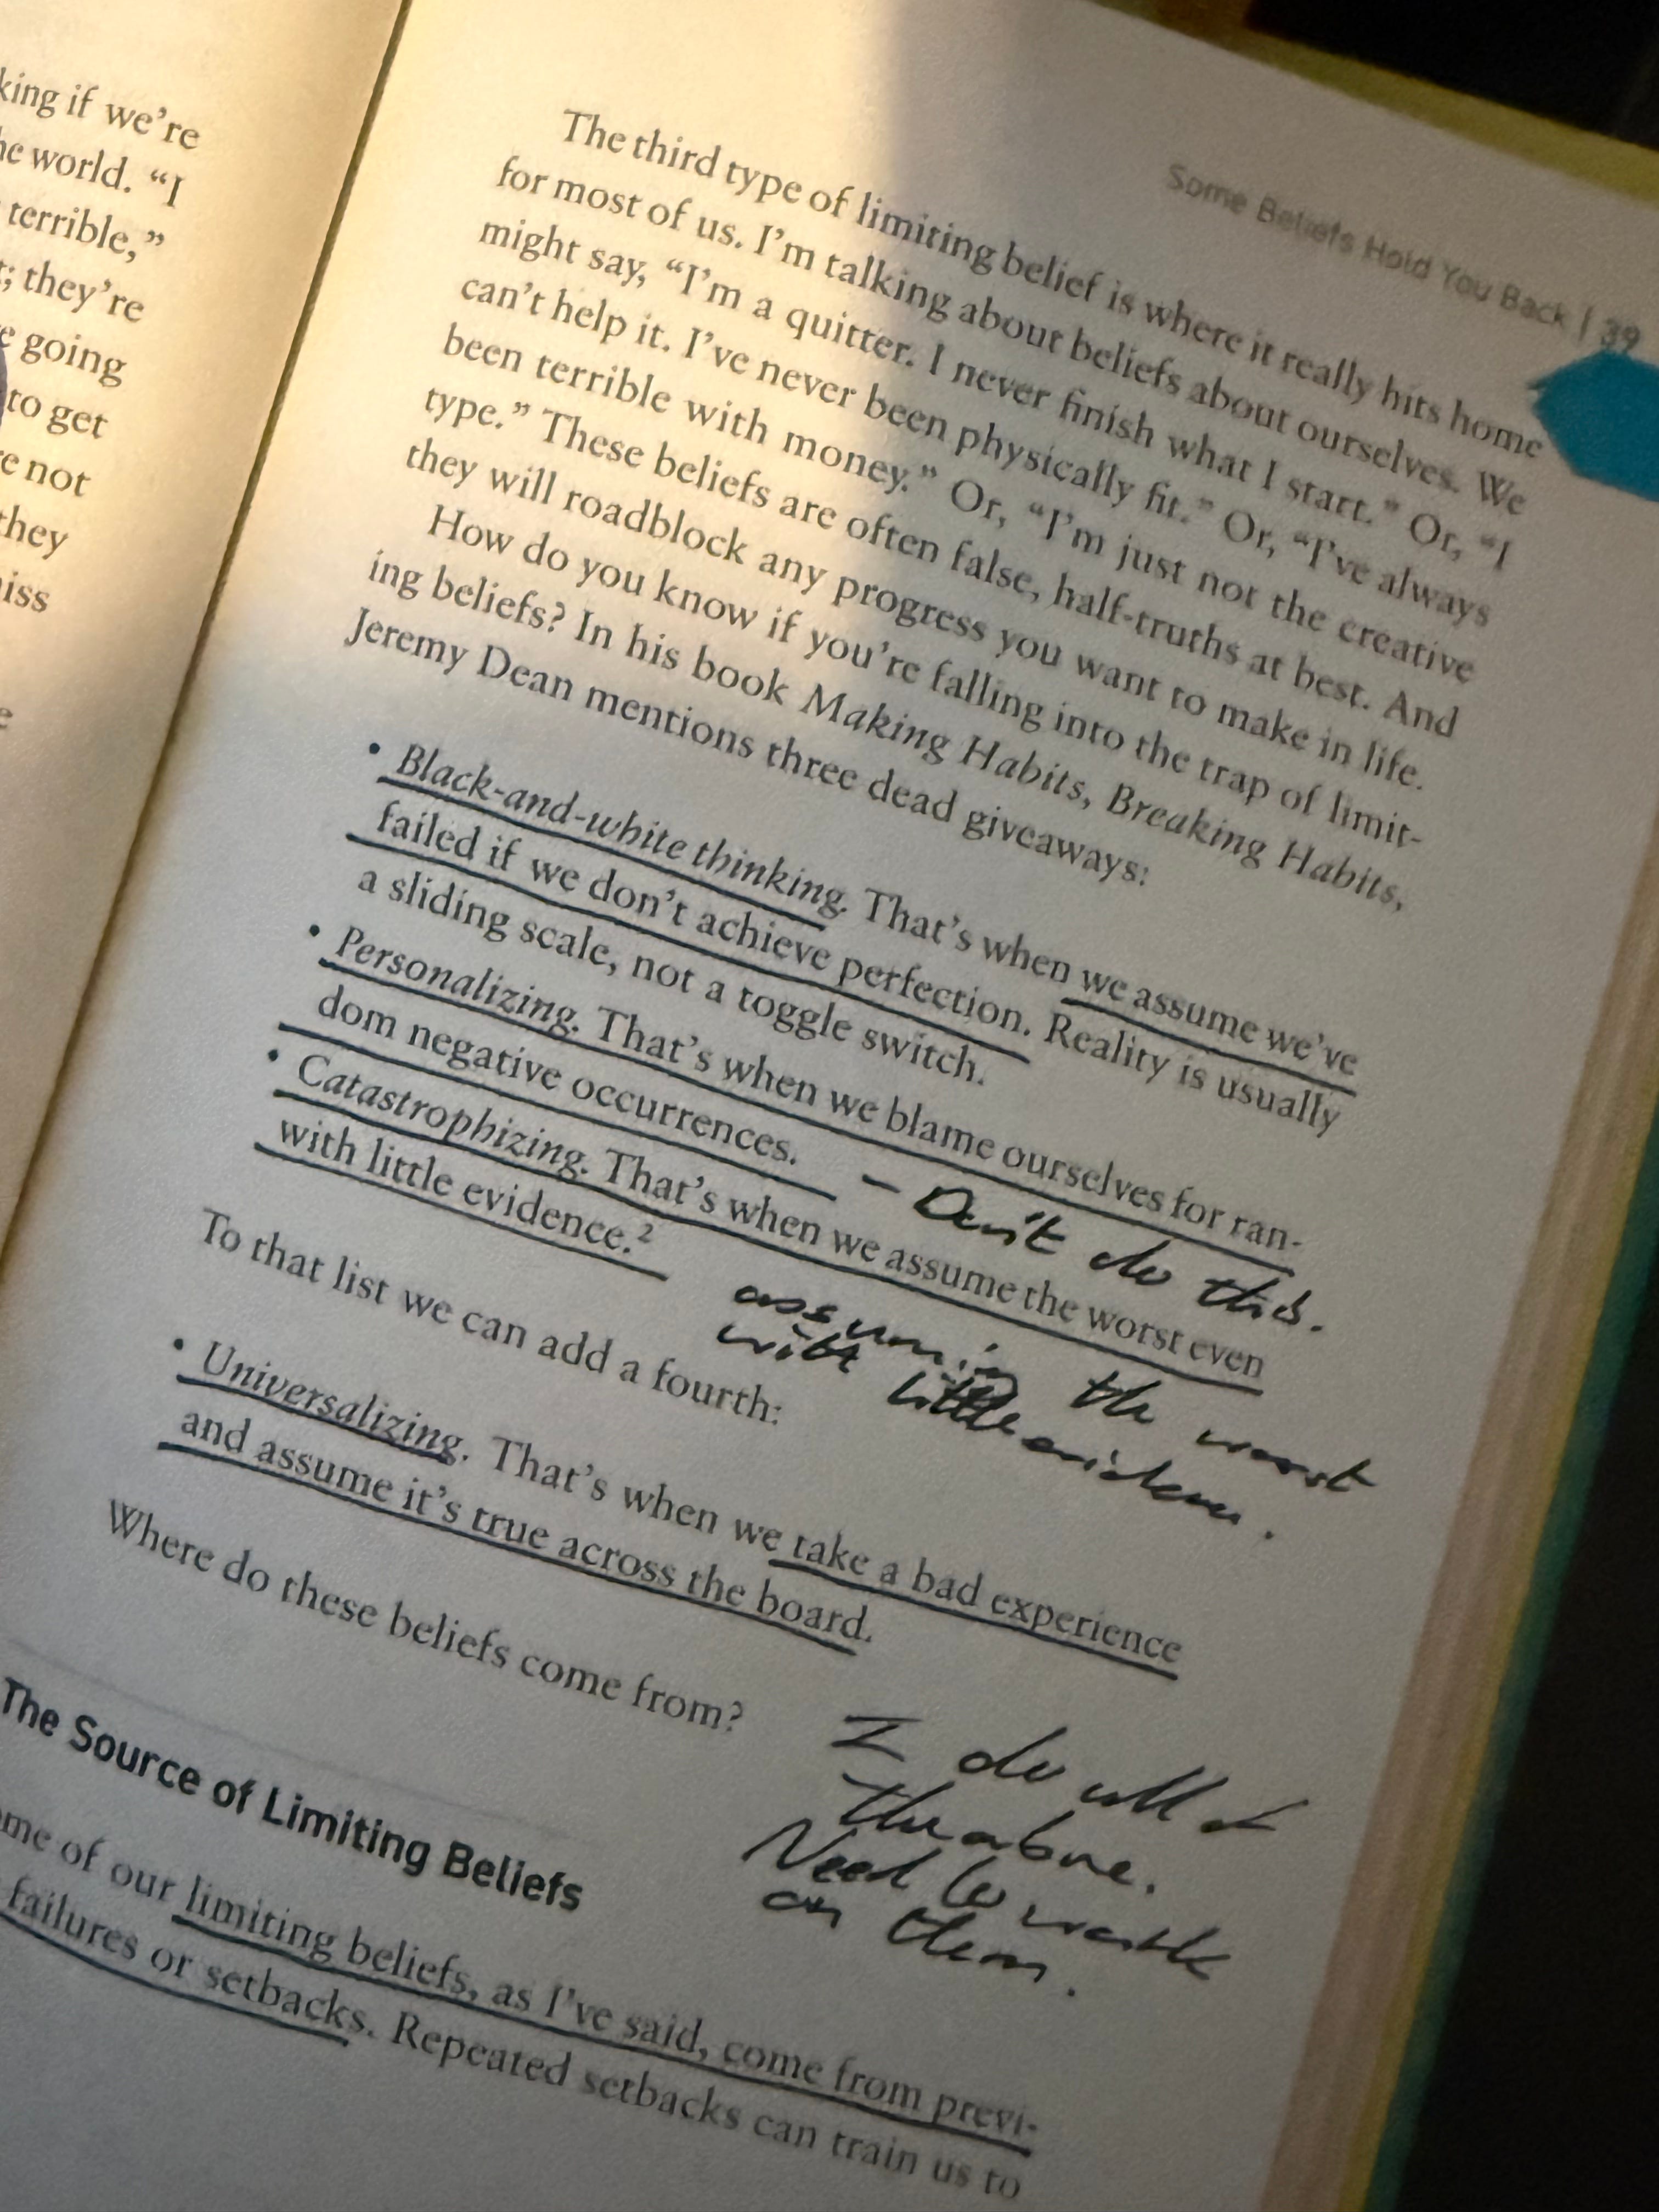 king if we're
he world. "I
terrible,"
; they're
going
to get
e not
they
iss
e
Some Beliefs Hold You Back | 39
The third type of limiting belief is where it really hits home
for most of us. I'm talking about beliefs about ourselves. We
might say, "I'm a quitter. I never finish what I start." Or, "I
can't help it. I've never been physically fit." Or, "I've always
been terrible with money." Or, "I'm just not the creative
type." These beliefs are often false, half-truths at best. And
they will roadblock any progress you want to make in life.
How do you know if you're falling into the trap of limit-
ing beliefs? In his book Making Habits, Breaking Habits,
Jeremy Dean mentions three dead giveaways:
• Black-and-white thinking. That's when we assume we've
failed if we don't achieve perfection. Reality is usually
a sliding scale, not a toggle switch.
• Personalizing. That's when we blame ourselves for ran-
dom negative occurrences.
– Don't do this.
• Catastrophizing. That's when we assume the worst even
with little evidence.²
assuming the worst
with little evidence.
To that list we can add a fourth:
• Universalizing. That's when we take a bad experience
and assume it's true across the board.
Where do these beliefs come from?
I do all of
the above.
Need to work
on them.
The Source of Limiting Beliefs
ome of our limiting beliefs, as I've said, come from previ-
failures or setbacks. Repeated setbacks can train us to